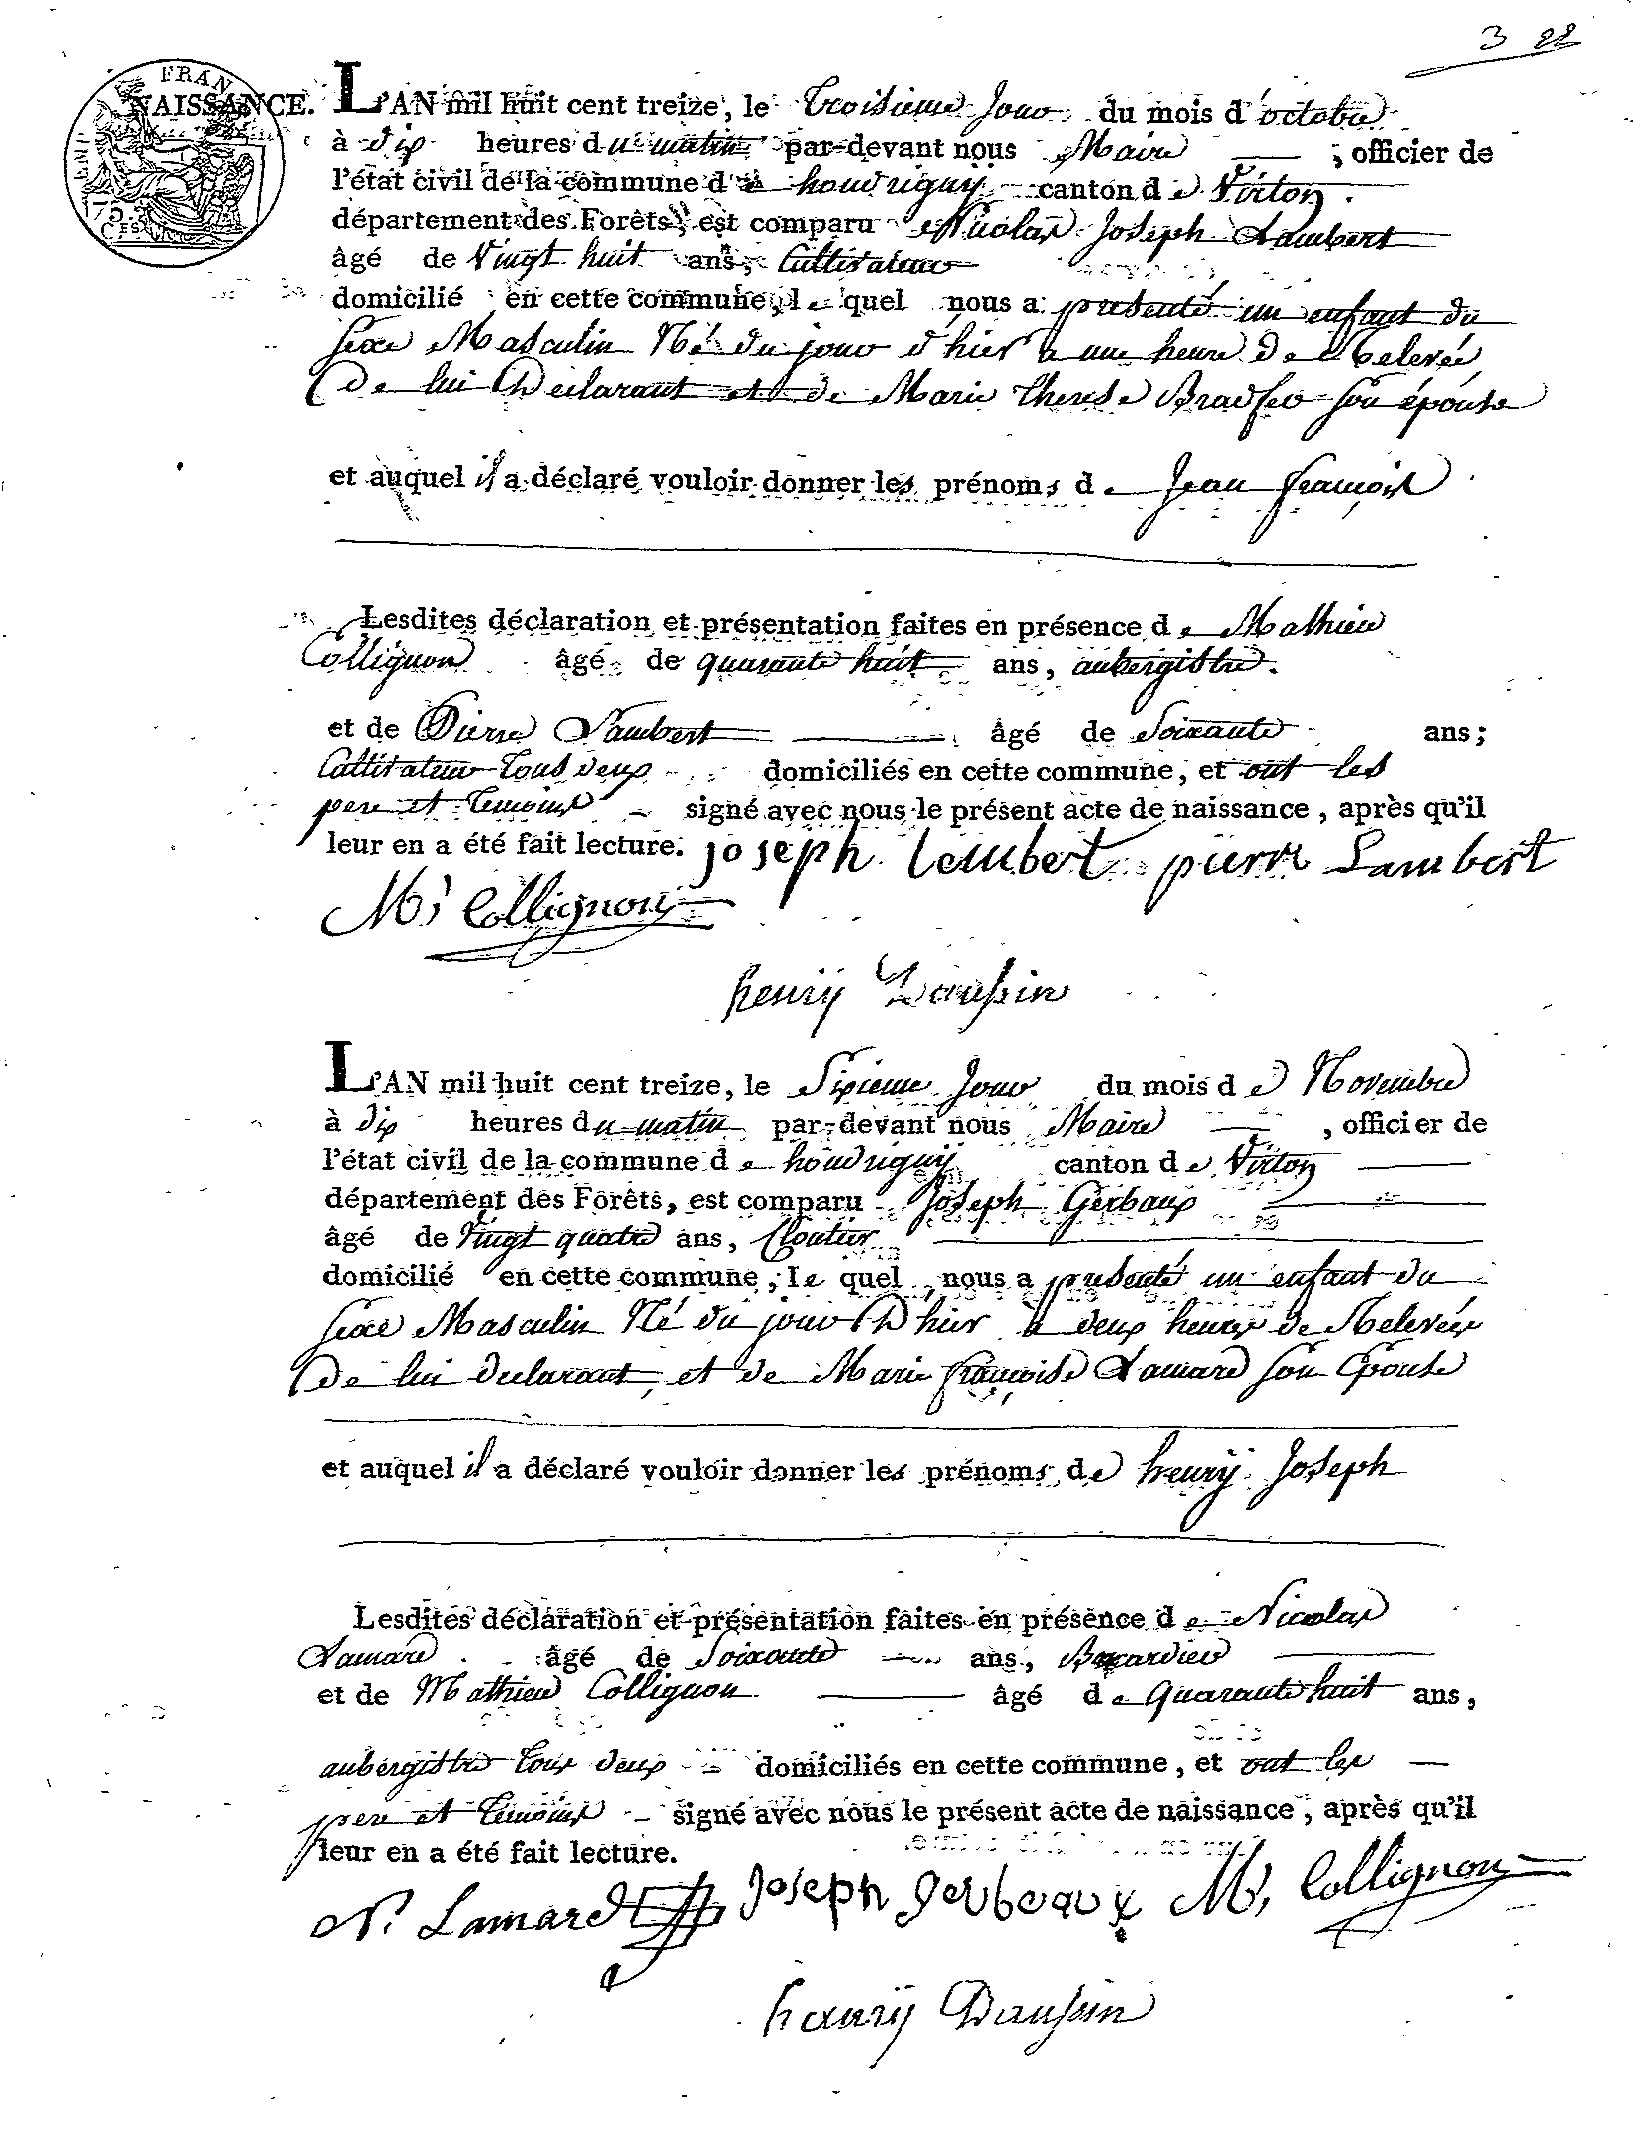 3 22
FRAN
NAISSANCE. L'AN mil huit cent treize, le troisieme Jour du mois d'octobre
à dix heures du matin par-devant nous Maire , officier de
l'état civil de la commune de houdrigny canton de Virton
département des Forêts, est comparu Nicolas Joseph Lambert
âgé de Vingt huit ans, Cultivateur
domicilié en cette commune, le quel nous a presenté un enfant du
sexe Masculin Né du jour d'hier a une heure de Relevée
De lui Declarant et de Marie Therese son épouse
et auquel il a déclaré vouloir donner les prénoms de Jean françois
Lesdites déclaration et présentation faites en présence de Mathieu
Collignon âgé de quarante huit ans, aubergiste.
et de Pierre Lambert âgé de Soixante ans;
Cultivateur tous deux domiciliés en cette commune, et ont les
pere et temoins signé avec nous le présent acte de naissance, après qu'il
leur en a été fait lecture. joseph lembert pierre Lambert
M, Collignon
henrÿ Daussin
L'AN mil huit cent treize, le Sixieme Jour du mois de Novembre
à dix heures du matin par-devant nous Maire , officier de
l'état civil de la commune de houdrigny canton de Virton
département des Forêts, est comparu Joseph Gerbaux
âgé de Vingt quatre ans, Cloutier
domicilié en cette commune, le quel nous a presenté un enfant du
sexe Masculin Né du jour D'hier à deux heures de Relevée
De lui declarant, et de Marie françoise Lamard son Epouse
et auquel il a déclaré vouloir donner les prénoms de henrÿ Joseph
Lesdites déclaration et présentation faites en présence de Nicolas
Lamard âgé de Soixante ans,
et de Mathieu Collignon âgé de Quarante huit ans,
aubergiste tous deux domiciliés en cette commune, et ont les
pere et temoins signé avec nous le présent acte de naissance, après qu'il
leur en a été fait lecture.
N. Lamard Joseph gerbeaux M, Collignon
henrÿ Daussin